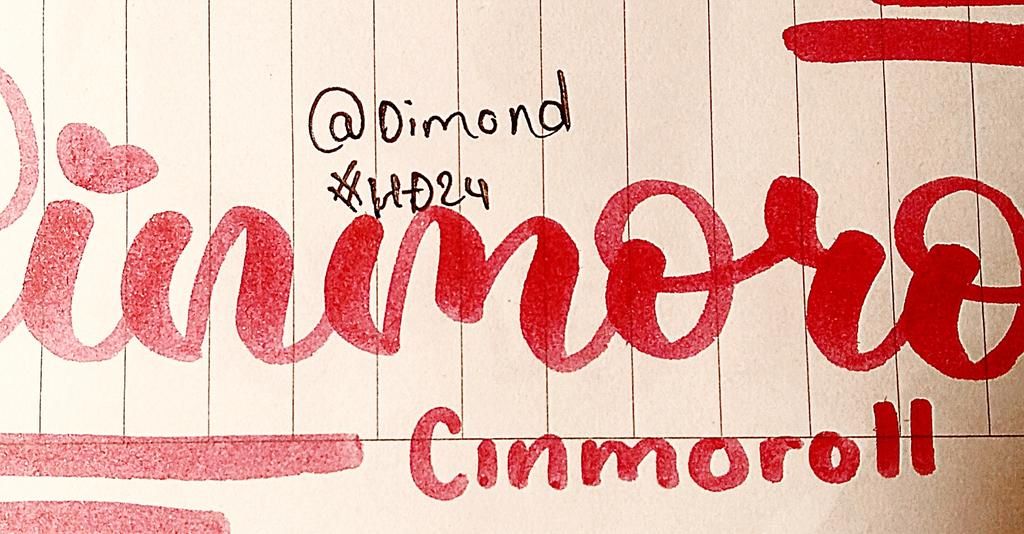 @Dimond
#HD24
Cinmoro
Cinmoroll